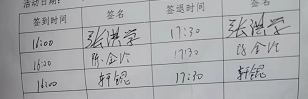 活动日期：
签到时间 签名 签退时间 签名
16:00 张洪学 17:30 张洪学
16:00 陈金 17:30 陈金
16:00 轩锟 17:30 轩锟